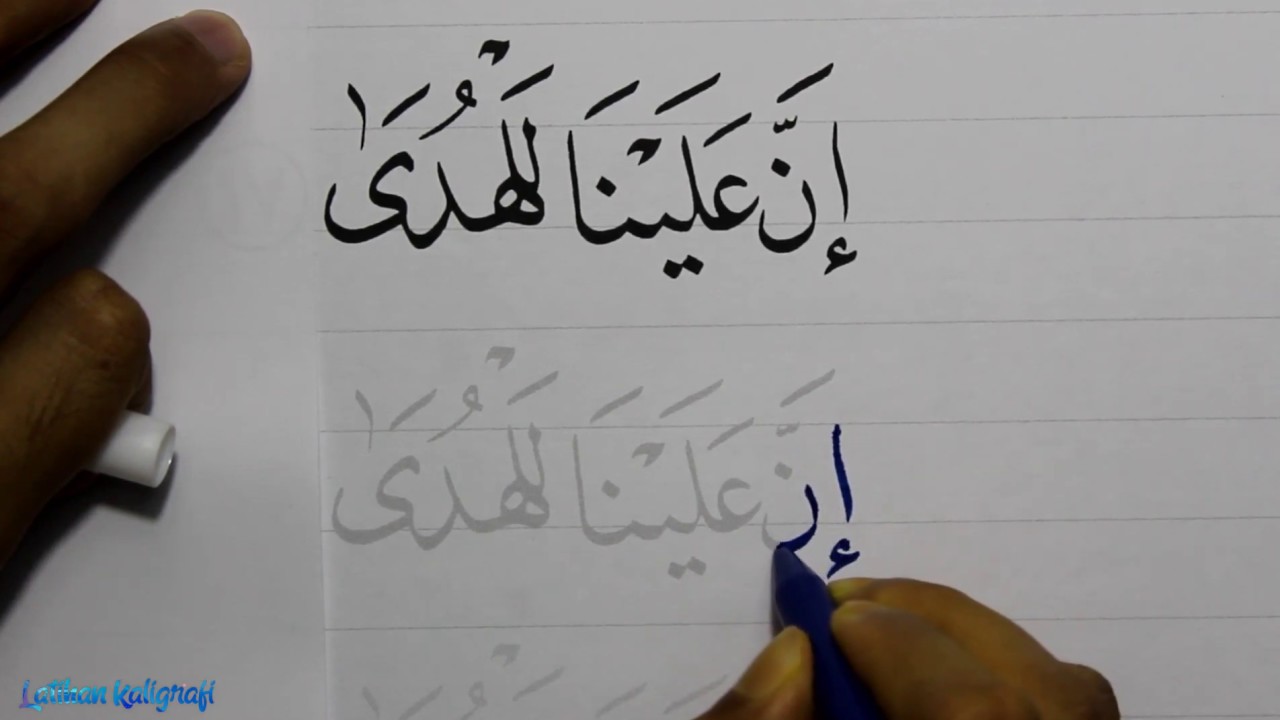 إِنَّ عَلَيْنَا لَلْهُدَىٰ
إِنَّ عَلَيْنَا لَلْهُدَىٰ
Latihan Kaligrafi